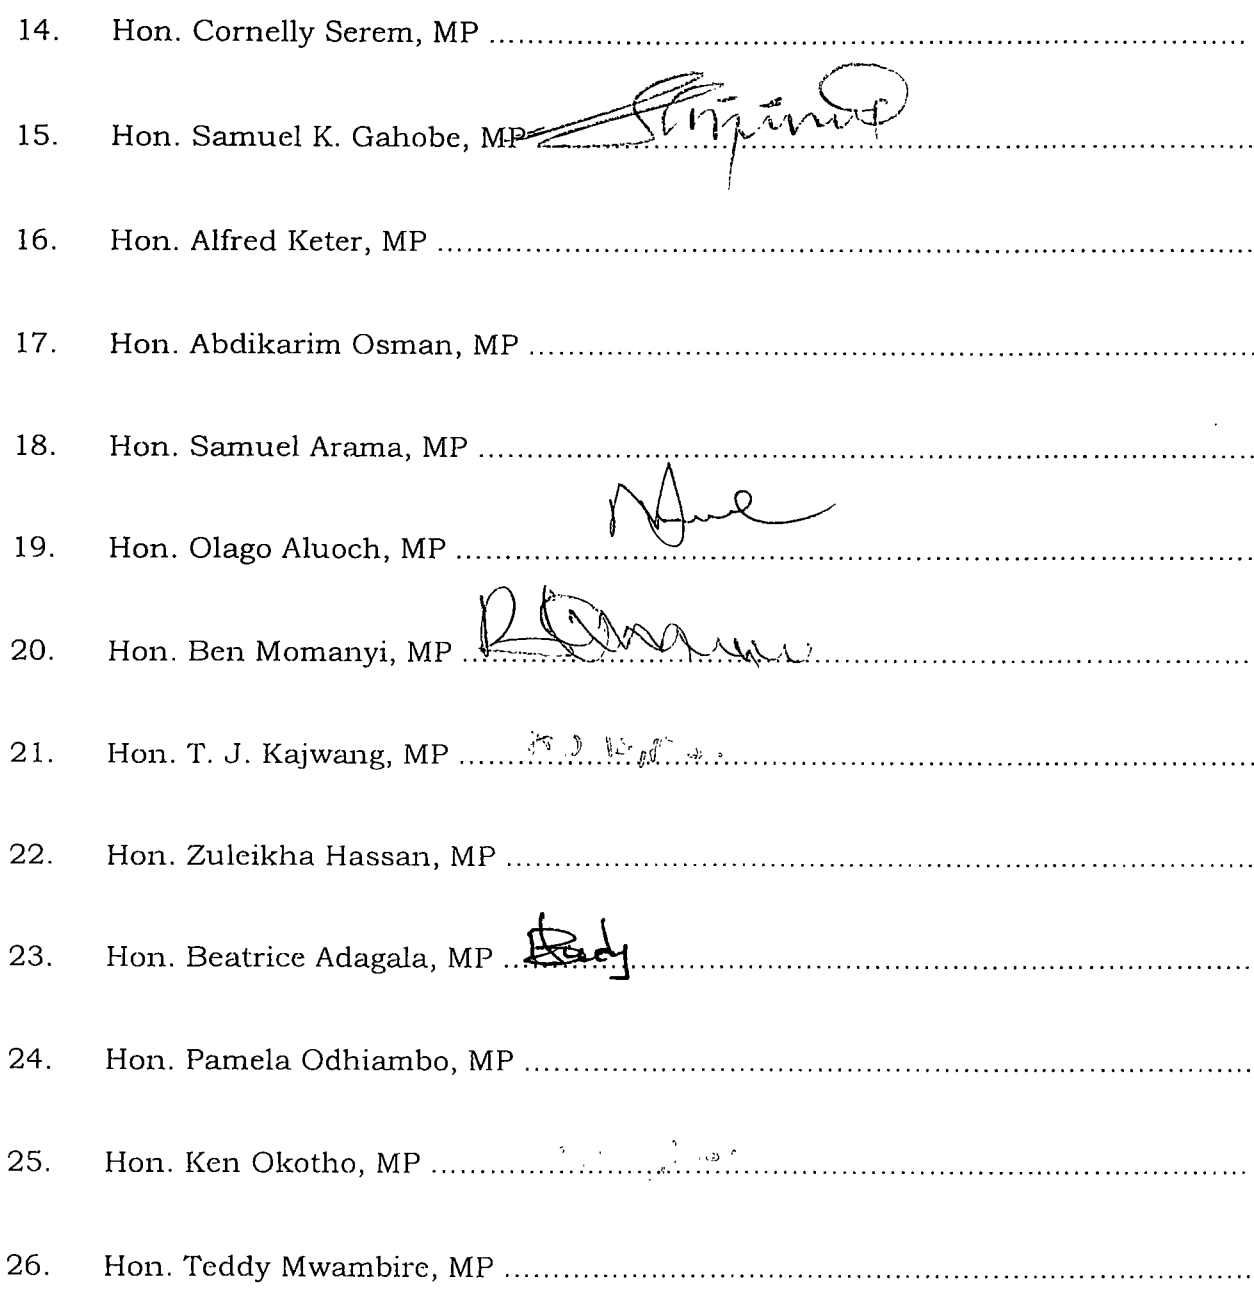 14. Hon. Cornelly Serem, MP ........................................
15. Hon. Samuel K. Gahobe, MP ........................................
16. Hon. Alfred Keter, MP ........................................
17. Hon. Abdikarim Osman, MP ........................................
18. Hon. Samuel Arama, MP ........................................
19. Hon. Olago Aluoch, MP ........................................
20. Hon. Ben Momanyi, MP ........................................
21. Hon. T. J. Kajwang, MP ........................................
22. Hon. Zuleikha Hassan, MP ........................................
23. Hon. Beatrice Adagala, MP ........................................
24. Hon. Pamela Odhiambo, MP ........................................
25. Hon. Ken Okotho, MP ........................................
26. Hon. Teddy Mwambire, MP ........................................